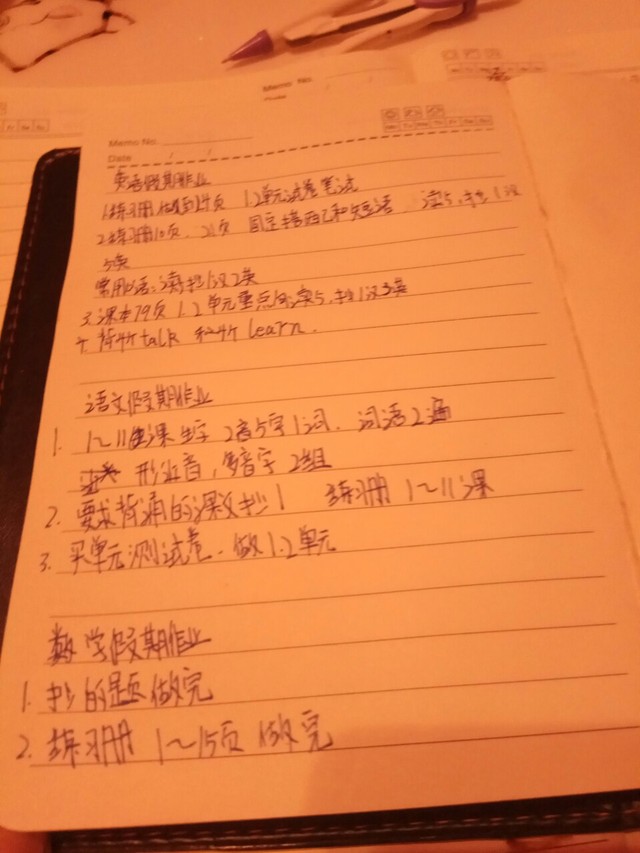 Memo No.
Memo No.
Date
英语假期作业
1.练习册做到14页 1.2单元试卷笔试
2.练习册10页、21页 固定搭配和短语、读5.抄1汉
5英
常用口语:读5抄1汉2英
3.课本79页 1.2单元重点句读5.抄1汉3英
4.背听talk 和听learn.
语文假期作业
1. 1~11课生字 2音5字1词、词语2遍
形近音,多音字2组
2. 要求背诵的课文抄1 练习册 1~11课
3. 买单元测试卷.做1.2单元
数学假期作业
1. 抄的题做完
2. 练习册 1~15页 做完